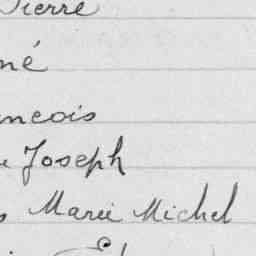 Pierre
né
ncois
e Joseph
s Marie Michel